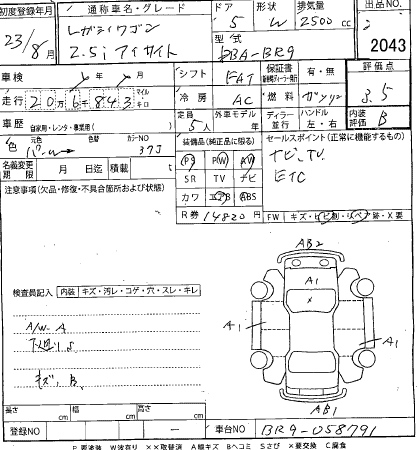 初度登録年月 通称車名・グレード ドア 形状 排気量 出品NO.
23/8月 レガシィワゴン 5 W 2500cc
2.5i アイサイト 2043
型式 DBA-BR9
車検 年 月 シフト FAT 保証書 有・無 評価点
走行 20万6千843 マイル キロ 冷房 AC 燃料 ガソリン 3.5
車歴 自家用・レンタ・事業用( ) 定員 5人 外車モデル年 ディーラー 並行 ハンドル 左・右 内装評価 B
色 元色 カラーNO 37J
装備品(純正品に限る) セールスポイント(正常に機能するもの)
PS PW AW ナビ、TV
名義変更期限 月 日迄 積載 t SR TV ナビ ETC
注意事項(欠品・修復・不具合箇所および状態) カワ エアB ABS
R券 14820円 FW キズ・ヒビ割・リペア跡・X要
AB2
A1
X
検査員記入 内装 キズ・汚レ・コゲ・穴・スレ・キレ
A1 A1
A/W A
下廻りS
キズ、B
AB1
長さ cm 幅 cm 高さ cm
登録NO - 車台NO BR9-058791
P要塗装 W波有り XX取替済 A線キズ Bヘコミ Sさび X要交換 C腐食